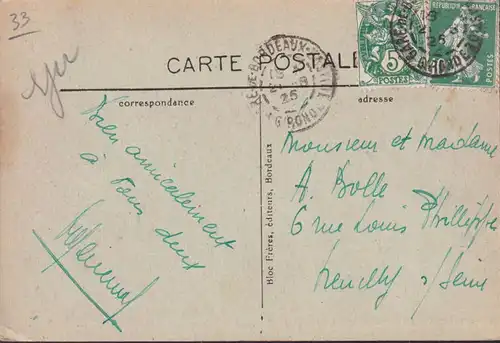 33
CARTE POSTALE
RÉPUBLIQUE FRANÇAISE
5
POSTES
POSTES
25
GIRONDE
correspondance
adresse
Bien amicalement
à vous deux
Monsieur et Madame
A. Bolle
6 rue Louis Philippe
Neuilly s/Seine
Bloc Frères, éditeurs, Bordeaux